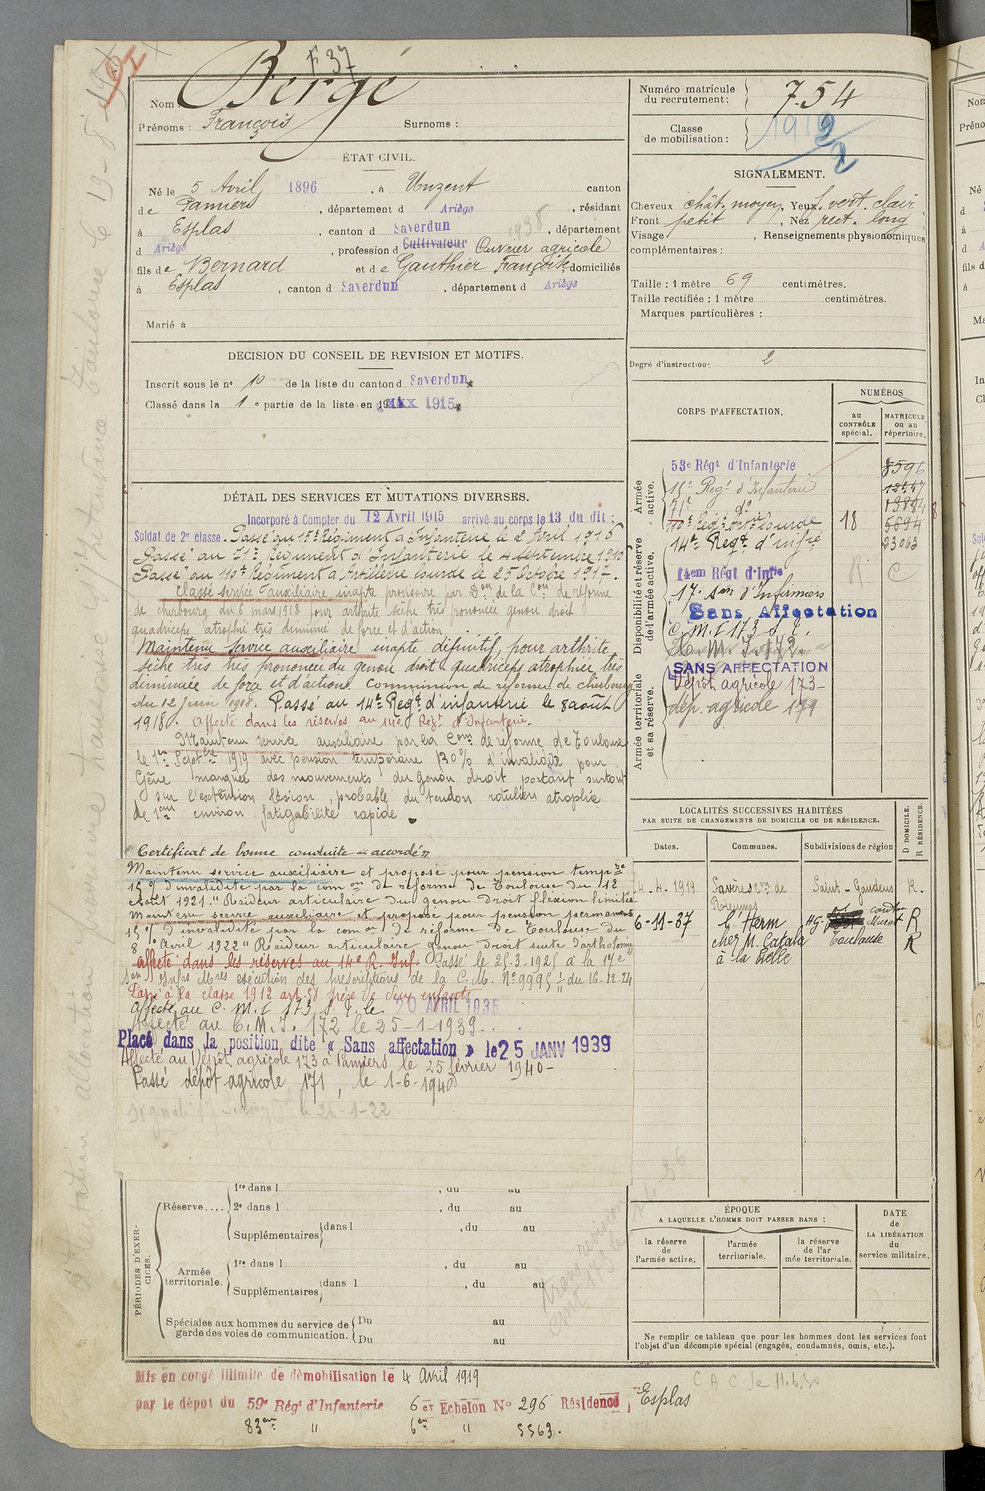 F 37
Nom : Bergé
Prénoms : François Surnoms :
ÉTAT CIVIL.
Né le 5 Avril 1896, à Unzent canton
de Pamiers, département d Ariège, résidant
à Esplas, canton d Saverdun 1938, département
d Ariège, profession d Cultivateur Ouvrier agricole
fils de Bernard et de Gauthier Françoise domiciliés
à Esplas, canton d Saverdun, département d Ariège
Marié à
DECISION DU CONSEIL DE REVISION ET MOTIFS.
Inscrit sous le n° 10 de la liste du canton d Saverdun
Classé dans la 1e partie de la liste en 1915
DÉTAIL DES SERVICES ET MUTATIONS DIVERSES.
Incorporé à Compter du 12 Avril 1915 arrivé au corps le 13 du dit ;
Soldat de 2e classe. Passé au 15e Régiment d'Infanterie le 2 Avril 1915
Passé au 71e Régiment d'Infanterie le 4 septembre 1915
Passé au 110e Régiment d'Artillerie lourde le 25 Octobre 1917.
Classé service auxiliaire inapte provisoire par Don de la Con de réforme
de cherbourg du 6 mars 1918 pour arthrite sèche très prononcée genou droit
quadriceps atrophié très diminué de force et d'action
Maintenu service auxiliaire inapte définitif, pour arthrite
sèche très très prononcée du genou droit quadriceps atrophié très
diminuée de force et d'action. Commission de réforme de cherbourg
du 12 juin 1918. Passé au 14e Regt d'infanterie le 8 aout
1918. Affecté dans les réserves au 14e Regt d'Infanterie.
Maintenu service auxiliaire par la Com de réforme de Toulouse
le 1er Septbre 1919 avec pension temporaire 30% d'invalidité pour
Gêne marquée des mouvements du Genou droit portant surtout
sur l'extension lésion, probable du tendon rotulien atrophie
de 1cm environ fatigabilité rapide
"Certificat de bonne conduite - accordé"
Maintenu service auxiliaire et proposé pour pension tempre
15% d'invalidité par la comon de réforme de Toulouse du 12
Août 1921 "Raideur articulaire du genou droit flexion limitée
Maintenu service auxiliaire et proposé pour pension permanente
15% d'invalidité par la comon de réforme de Toulouse du
8 Avril 1922 "Raideur articulaire Genou droit suite d'arthotomie
Affecté dans les réserves au 14e R. Inf. Passé le 25-3-1925 à la 17e
Son Infrs Mres exécution des prescriptions de la C. M. N° 9995 1/11 du 16.12.24
Passé à la classe 1912 art 58 père de deux enfants
Affecté au C. M. I 173 S. I. le 20 AVRIL 1935
Affecté au C. M. I. 172 le 25-1-1939.
Placé dans la position dite « Sans affectation » le 25 JANV 1939
Affecté au Dépôt agricole 173 à Pamiers le 25 février 1940-
Passé dépôt agricole 171, le 1-6-1940
PÉRIODES D'EXERCICES.
Réserve.... 1re dans l , du au
2e dans l , du au
Supplémentaires dans l , du au
Armée territoriale. 1re dans l , du au
Supplémentaires dans l , du au
Spéciales aux hommes du service de garde des voies de communication. Du au
Du au
Mis en congé illimité de démobilisation le 4 Avril 1919
par le dépôt du 59e Régt d'Infanterie 6e Echelon N° 296 Résidence, Esplas
83em " 6em " 5563.
Numéro matricule du recrutement : 754
Classe de mobilisation : 1912
SIGNALEMENT.
Cheveux chât. moyen, Yeux vert clair
Front petit, Nez rect. long
Visage , Renseignements physionomiques
complémentaires :
Taille : 1 mètre 69 centimètres.
Taille rectifiée : 1 mètre centimètres.
Marques particulières :
Degré d'instruction : 2
CORPS D'AFFECTATION.
NUMÉROS
au CONTRÔLE spécial.
MATRICULE ou au répertoire.
Armée active.
Disponibilité et réserve de l'armée active.
Armée territoriale et sa réserve.
53e Régt d'Infanterie 8596
15e Regt d'Infanterie
71e do
110e Regt Artie Lourde 18
14e Regt d'infie
14em Régt d'Infie
17e Son d'Infirmiers
Sans Affectation
C. M. I 173 S. I.
C. M. I. 172.
SANS AFFECTATION
Dépôt agricole 173
dép. agricole 171
LOCALITÉS SUCCESSIVES HABITÉES
PAR SUITE DE CHANGEMENTS DE DOMICILE OU DE RÉSIDENCE.
Dates. Communes. Subdivisions de région
D DOMICILE.
R RÉSIDENCE.
4.4.1919 Savères con de Rieumes Saint-Gaudens R.
6-11-37 l'Herm HG. canton Muret R
chez M. Catala Toulouse R
à la Belle
ÉPOQUE
A LAQUELLE L'HOMME DOIT PASSER DANS :
la réserve de l'armée active.
l'armée territoriale.
la réserve de l'armée territoriale.
DATE de LA LIBÉRATION du service militaire.
Ne remplir ce tableau que pour les hommes dont les services font
l'objet d'un décompte spécial (engagés, condamnés, omis, etc.).
C A C le 11.6.30